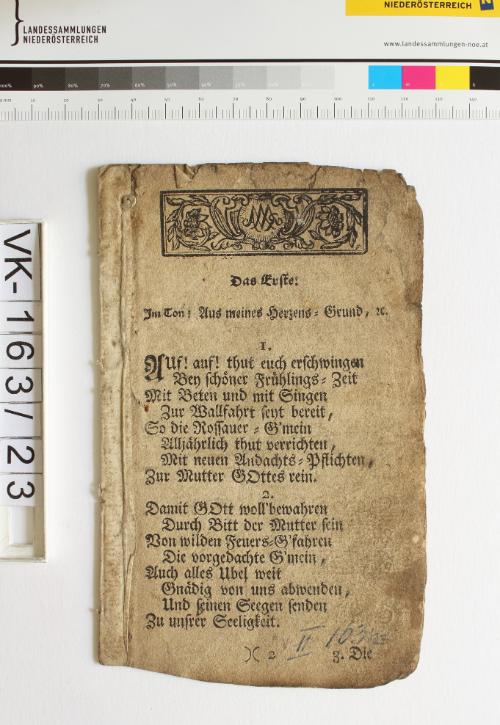 LANDESSAMMLUNGEN
NIEDERÖSTERREICH
NIEDERÖSTERREICH
www.landessammlungen-noe.at
VK-163/23
Das Erste:
Im Ton: Aus meines Herzens-Grund, ꝛc.
1.
AUf! auf! thut euch erschwingen
Bey schöner Frühlings-Zeit
Mit Beten und mit Singen
Zur Wallfahrt seyt bereit,
So die Rossauer-G'mein
Alljährlich thut verrichten,
Mit neuen Andachts-Pflichten,
Zur Mutter GOttes rein.
2.
Damit GOtt woll bewahren
Durch Bitt der Mutter sein
Von wilden Feuers-G'fahren
Die vorgedachte G'mein,
Auch alles Ubel weit
Gnädig von uns abwenden,
Und seinen Seegen senden
Zu unsrer Seeligkeit.
)( 2
II 163
3. Die